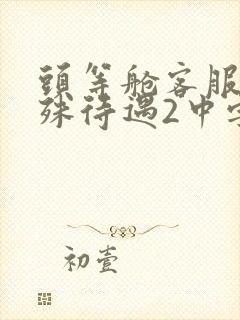 頭等舱客服
殊待遇2中字
初壹